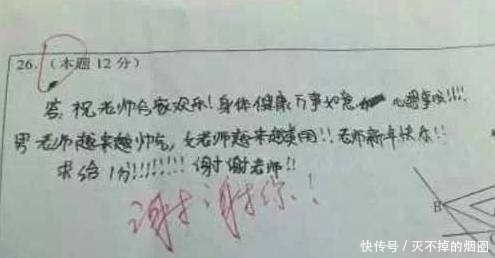 26.（本题12分）
答:祝老师合家欢乐!身体健康 万事如意 心想事成!!!!
男老师越来越帅气,女老师越来越美丽!!老师新年快乐!!
求给1分!!!!!!!!谢谢老师!!
谢谢你!!
B
快传号/灭不掉的烟圈